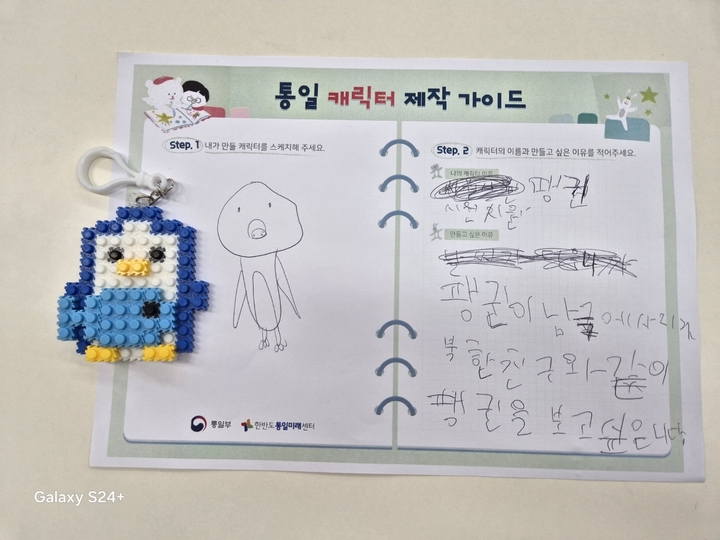 통일 캐릭터 제작 가이드
Step. 1 내가 만들 캐릭터를 스케치해 주세요.
통일부 한반도통일미래센터
Step. 2 캐릭터의 이름과 만들고 싶은 이유를 적어주세요.
나의 캐릭터 이름
만들고 싶은 이유
팽귄이 남극에 사리지
북한친구와 같이
팽귄을 보고 싶습니다
Galaxy S24+